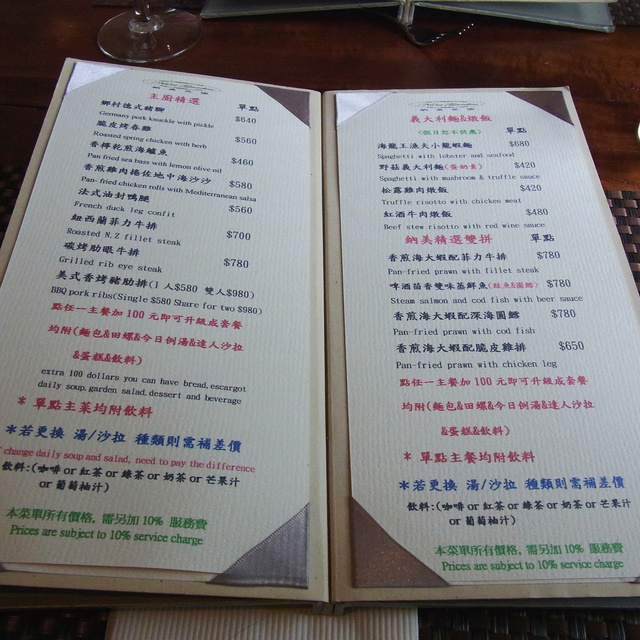 主廚精選 單點
鄉村德式豬腳 $640
Germany pork knuckle with pickle
脆皮烤春雞 $560
Roasted spring chicken with herb
香檸乾煎海鱸魚 $460
Pan fried sea bass with lemon olive oil
香煎雞肉捲佐地中海沙沙 $580
Pan-fried chicken rolls with Mediterranean salsa
法式油封鴨腿 $560
French duck leg confit
紐西蘭菲力牛排 $700
Roasted N.Z fillet steak
碳烤肋眼牛排 $780
Grilled rib eye steak
美式香烤豬肋排(1人$580 雙人$980)
BBQ pork ribs(Single $580 Share for two $980)
點任一主餐加 100 元即可升級成套餐
均附(麵包&田螺&今日例湯&達人沙拉
&蛋糕&飲料)
extra 100 dollars you can have bread, escargot
daily soup, garden salad, dessert and beverage
* 單點主菜均附飲料
*若更換 湯/沙拉 種類則需補差價
change daily soup and salad, need to pay the difference
飲料:(咖啡 or 紅茶 or 綠茶 or 奶茶 or 芒果汁
or 葡萄柚汁)
本菜單所有價格, 需另加 10% 服務費
Prices are subject to 10% service charge
義大利麵&燉飯
(假日恕不供應) 單點
海龍王漁夫小龍蝦麵 $680
Spaghetti with lobster and seafood
野菇義大利麵(蛋奶素) $420
Spaghetti with mushroom & truffle sauce
松露雞肉燉飯 $420
Truffle risotto with chicken meat
紅酒牛肉燉飯 $480
Beef stew risotto with red wine sauce
納美精選雙拼 單點
香煎海大蝦配菲力牛排 $780
Pan-fried prawn with fillet steak
啤酒茴香雙味蒸鮮魚(鮭魚&圓鱈) $780
Steam salmon and cod fish with beer sauce
香煎海大蝦配深海圓鱈 $780
Pan-fried prawn with cod fish
香煎海大蝦配脆皮雞排 $650
Pan-fried prawn with chicken leg
點任一主餐加 100 元即可升級成套餐
均附(麵包&田螺&今日例湯&達人沙拉
&蛋糕&飲料)
* 單點主餐均附飲料
*若更換 湯/沙拉 種類則需補差價
飲料:(咖啡 or 紅茶 or 綠茶 or 奶茶 or 芒果汁
or 葡萄柚汁)
本菜單所有價格, 需另加 10% 服務費
Prices are subject to 10% service charge